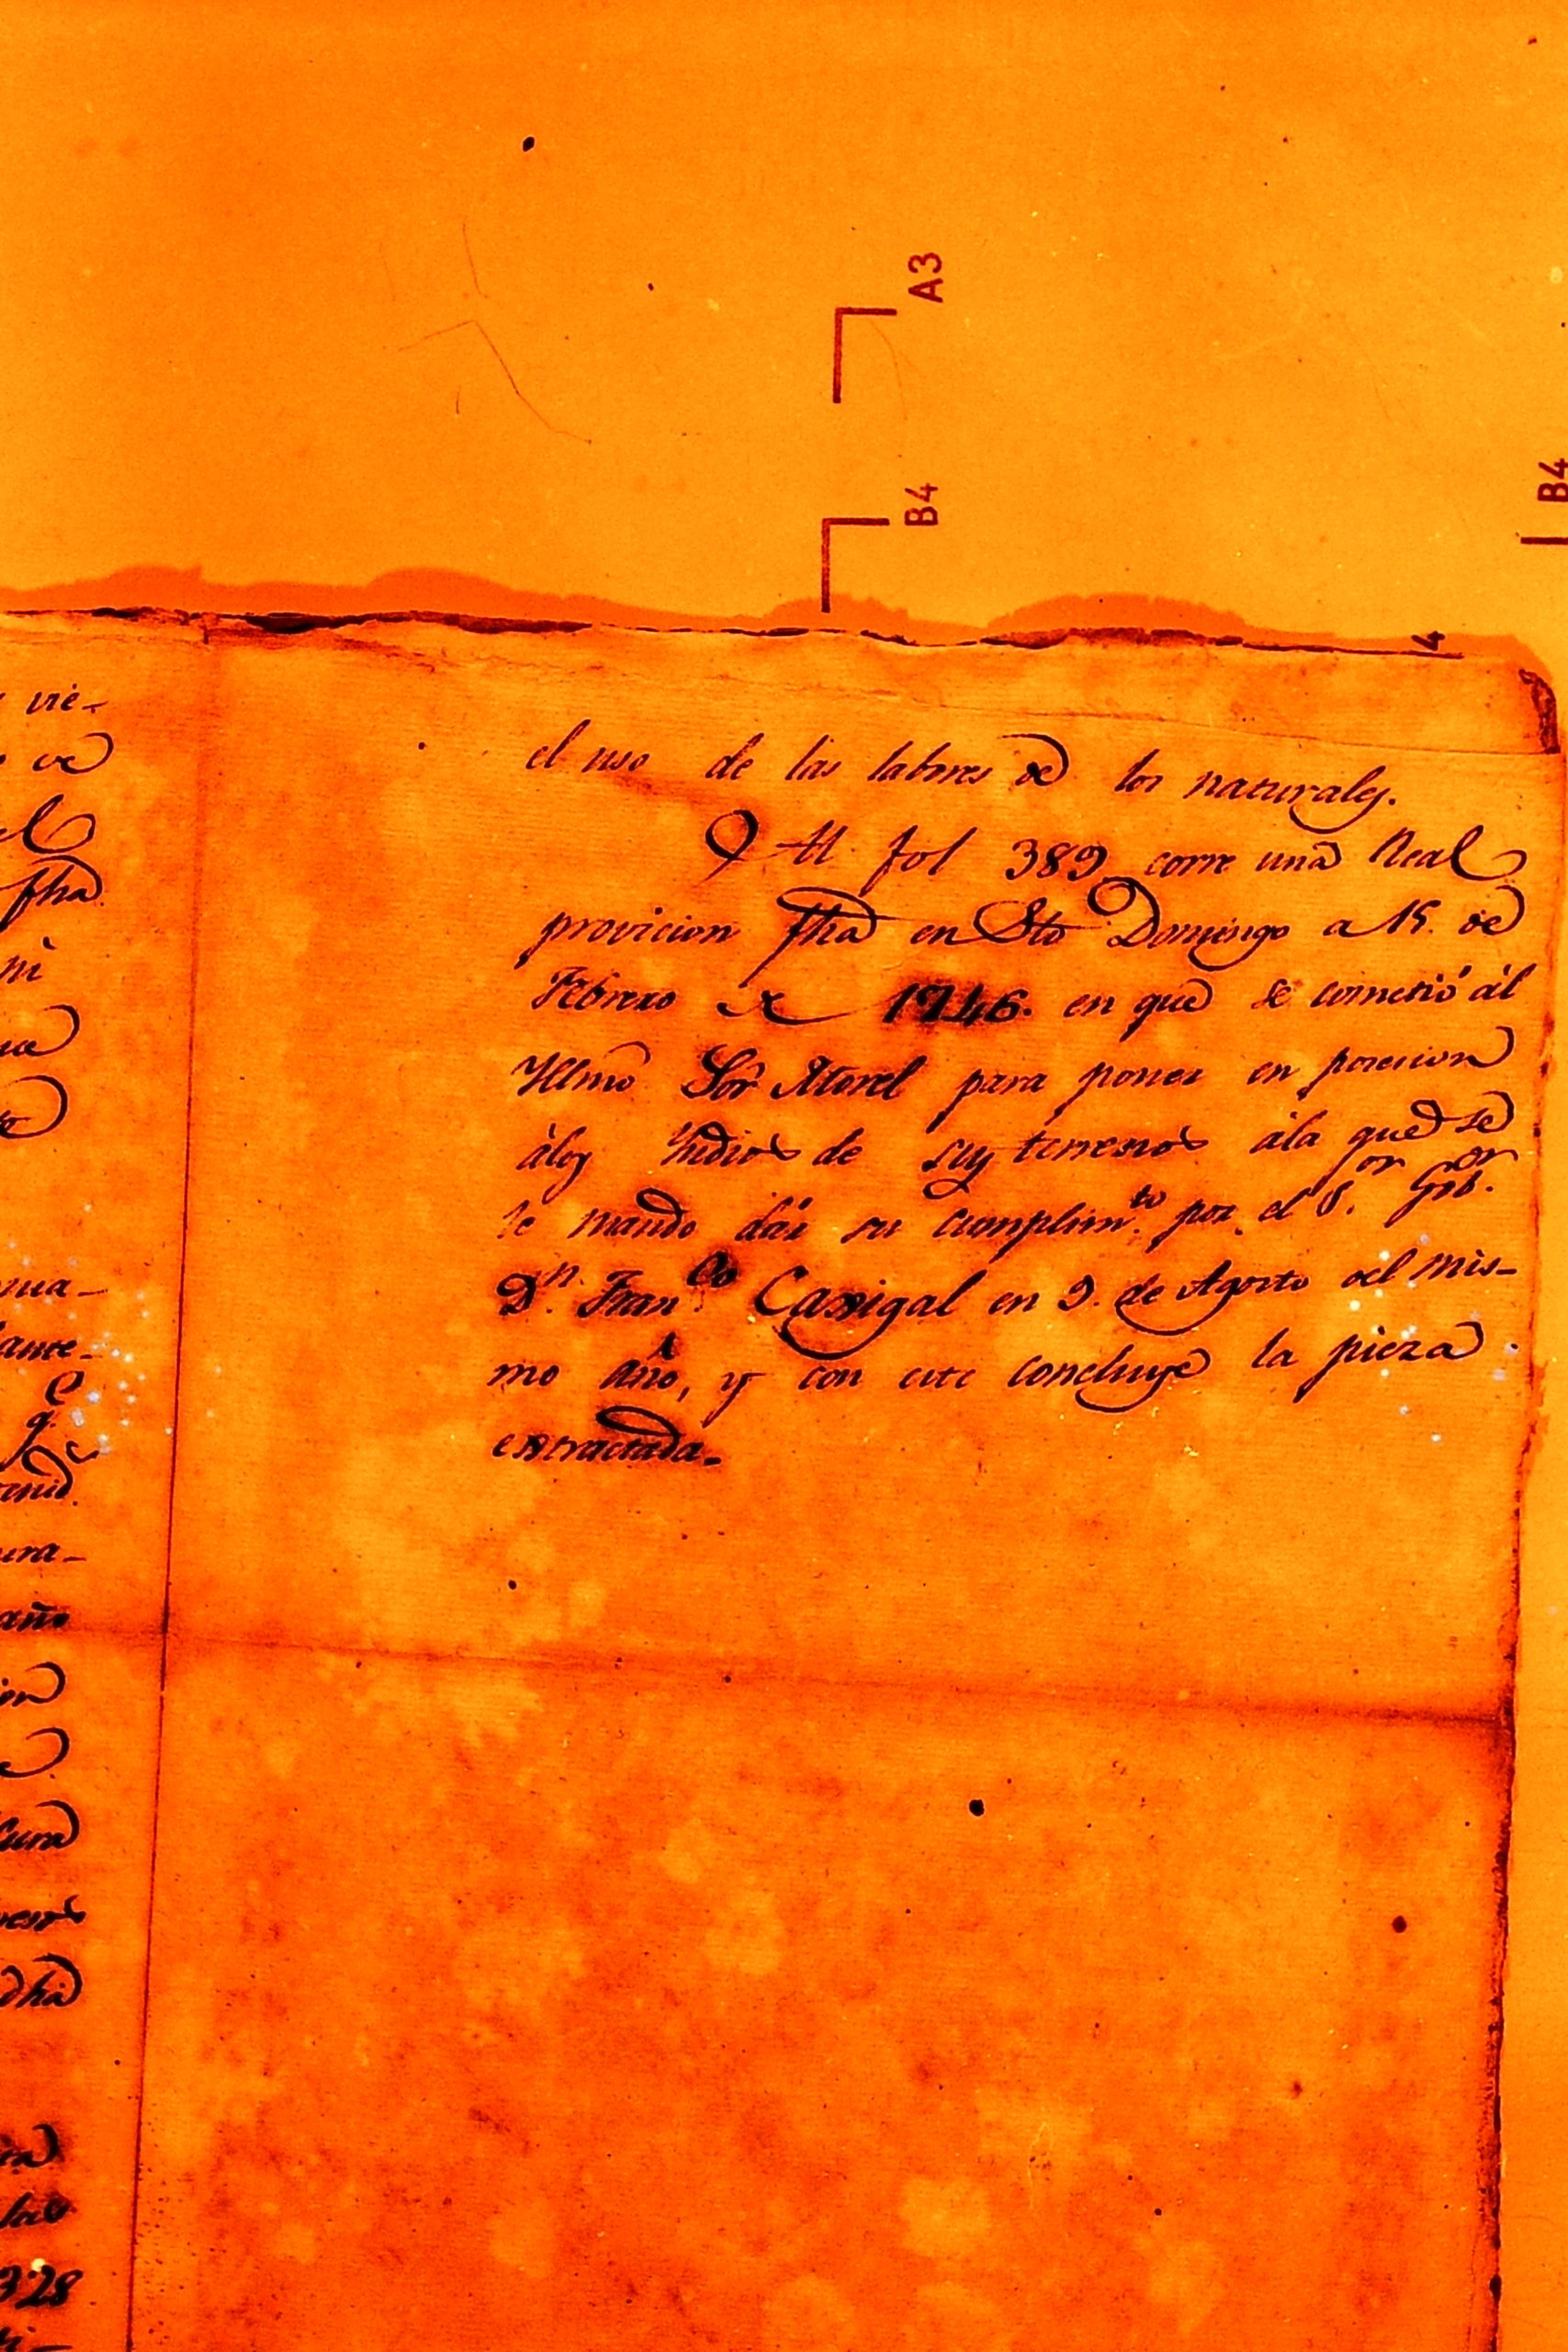 A3
B4
B4
4
el uso de las labores de los naturales.
Al fol 389 corre una Real
provicion fha en Sto Domingo a 15. de
Febrero de 1746. en que se cometió ál
Yllmo Sor Morel para poner en posecion
álos Yndios de sus terrenos ála que se
le mando dár su cumplimto por el Sor Gobor
Dn. Franco Caxigal en 9. de Agosto del mis-
mo año, y con este concluye la pieza
extractada.
vie-
de
el
fha
ni
nua-
lante-
e
q.
tenid.
ura-
año
ion
cura
dha
las
328